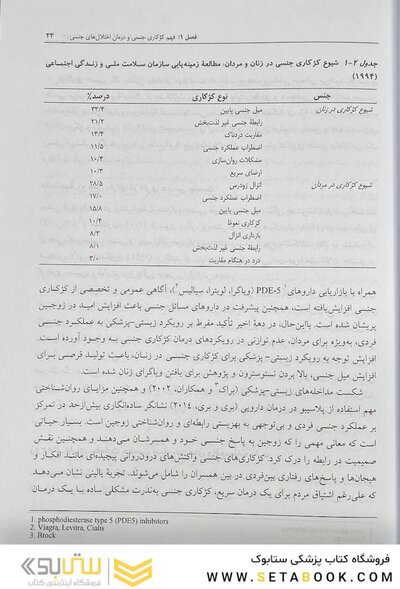 فصل ۱: فهم کژکاری جنسی و درمان اختلال‌های جنسی ۲۳
جدول ۲-۱ شیوع کژکاری جنسی در زنان و مردان، مطالعهٔ زمینه‌یابی سازمان سلامت ملی و زندگی اجتماعی
(۱۹۹۴)
جنس نوع کژکاری درصد٪
شیوع کژکاری در زنان میل جنسی پایین ۳۳/۴
رابطهٔ جنسی غیر لذت‌بخش ۲۱/۲
مقاربت دردناک ۱۴/۴
اضطراب عملکرد جنسی ۱۱/۵
مشکلات روان‌سازی ۱۰/۴
ارضای سریع ۱۰/۳
شیوع کژکاری در مردان انزال زودرس ۲۸/۵
اضطراب عملکرد جنسی ۱۷/۰
میل جنسی پایین ۱۵/۸
کژکاری نعوظ ۱۰/۴
بازداری انزال ۸/۳
رابطهٔ جنسی غیر لذت‌بخش ۸/۱
درد در هنگام مقاربت ۳/۰
همراه با بازاریابی داروهای PDE-5¹ (ویاگرا، لویترا، سیالیس²)، آگاهی عمومی و تخصصی از کژکاری
جنسی افزایش‌یافته است، همچنین پیشرفت در داروهای مسائل جنسی باعث افزایش امید در زوجین
پریشان شده است. بااین‌حال، در دههٔ اخیر تأکید مفرط بر رویکرد زیستی-پزشکی به عملکرد جنسی
فردی، به‌ویژه برای مردان، عدم توازنی در رویکردهای درمان کژکاری جنسی به وجود آورده است.
افزایش توجه به رویکرد زیستی- پزشکی برای کژکاری جنسی در زنان، باعث تولید قرصی برای
افزایش میل جنسی، بالا بردن تستوسترون و پژوهش برای یافتن ویاگرای زنان شده است.
شکست مداخله‌های زیستی-پزشکی (براک³ و همکاران، ۲۰۰۲) و همچنین مزایای روان‌شناختی
مهم استفاده از پلاسیبو در درمان دارویی (بری و بری، ۲۰۱۴) نشانگر ساده‌انگاری بیش‌ازحد در تمرکز
بر عملکرد جنسی فردی و بی‌توجهی به بهزیستی رابطه‌ای و روان‌شناختی زوجین است. بسیار حیاتی
است که معانی مهمی را که زوجین به پاسخ جنسی خود و همسرشان می‌دهند و همچنین نقش
صمیمیت در رابطه را درک کرد. کژکاری‌های جنسی واکنش‌های درون‌روانی پیچیده‌ای مانند افکار و
هیجان‌ها و پاسخ‌های رفتاری بین‌فردی در بین همسران را شامل می‌شوند. تجربهٔ بالینی نشان می‌دهد
که علی‌رغم اشتیاق مردم برای یک درمان سریع، کژکاری جنسی به‌ندرت مشکلی ساده با یک درمان
1. phosphodiesterase type 5 (PDE5) inhibitors
2. Viagra, Levitra, Cialis
3. Brock
فروشگاه کتاب پزشکی ستابوک
WWW.SETABOOK.COM
ستابوک
فروشگاه اینترنتی کتاب